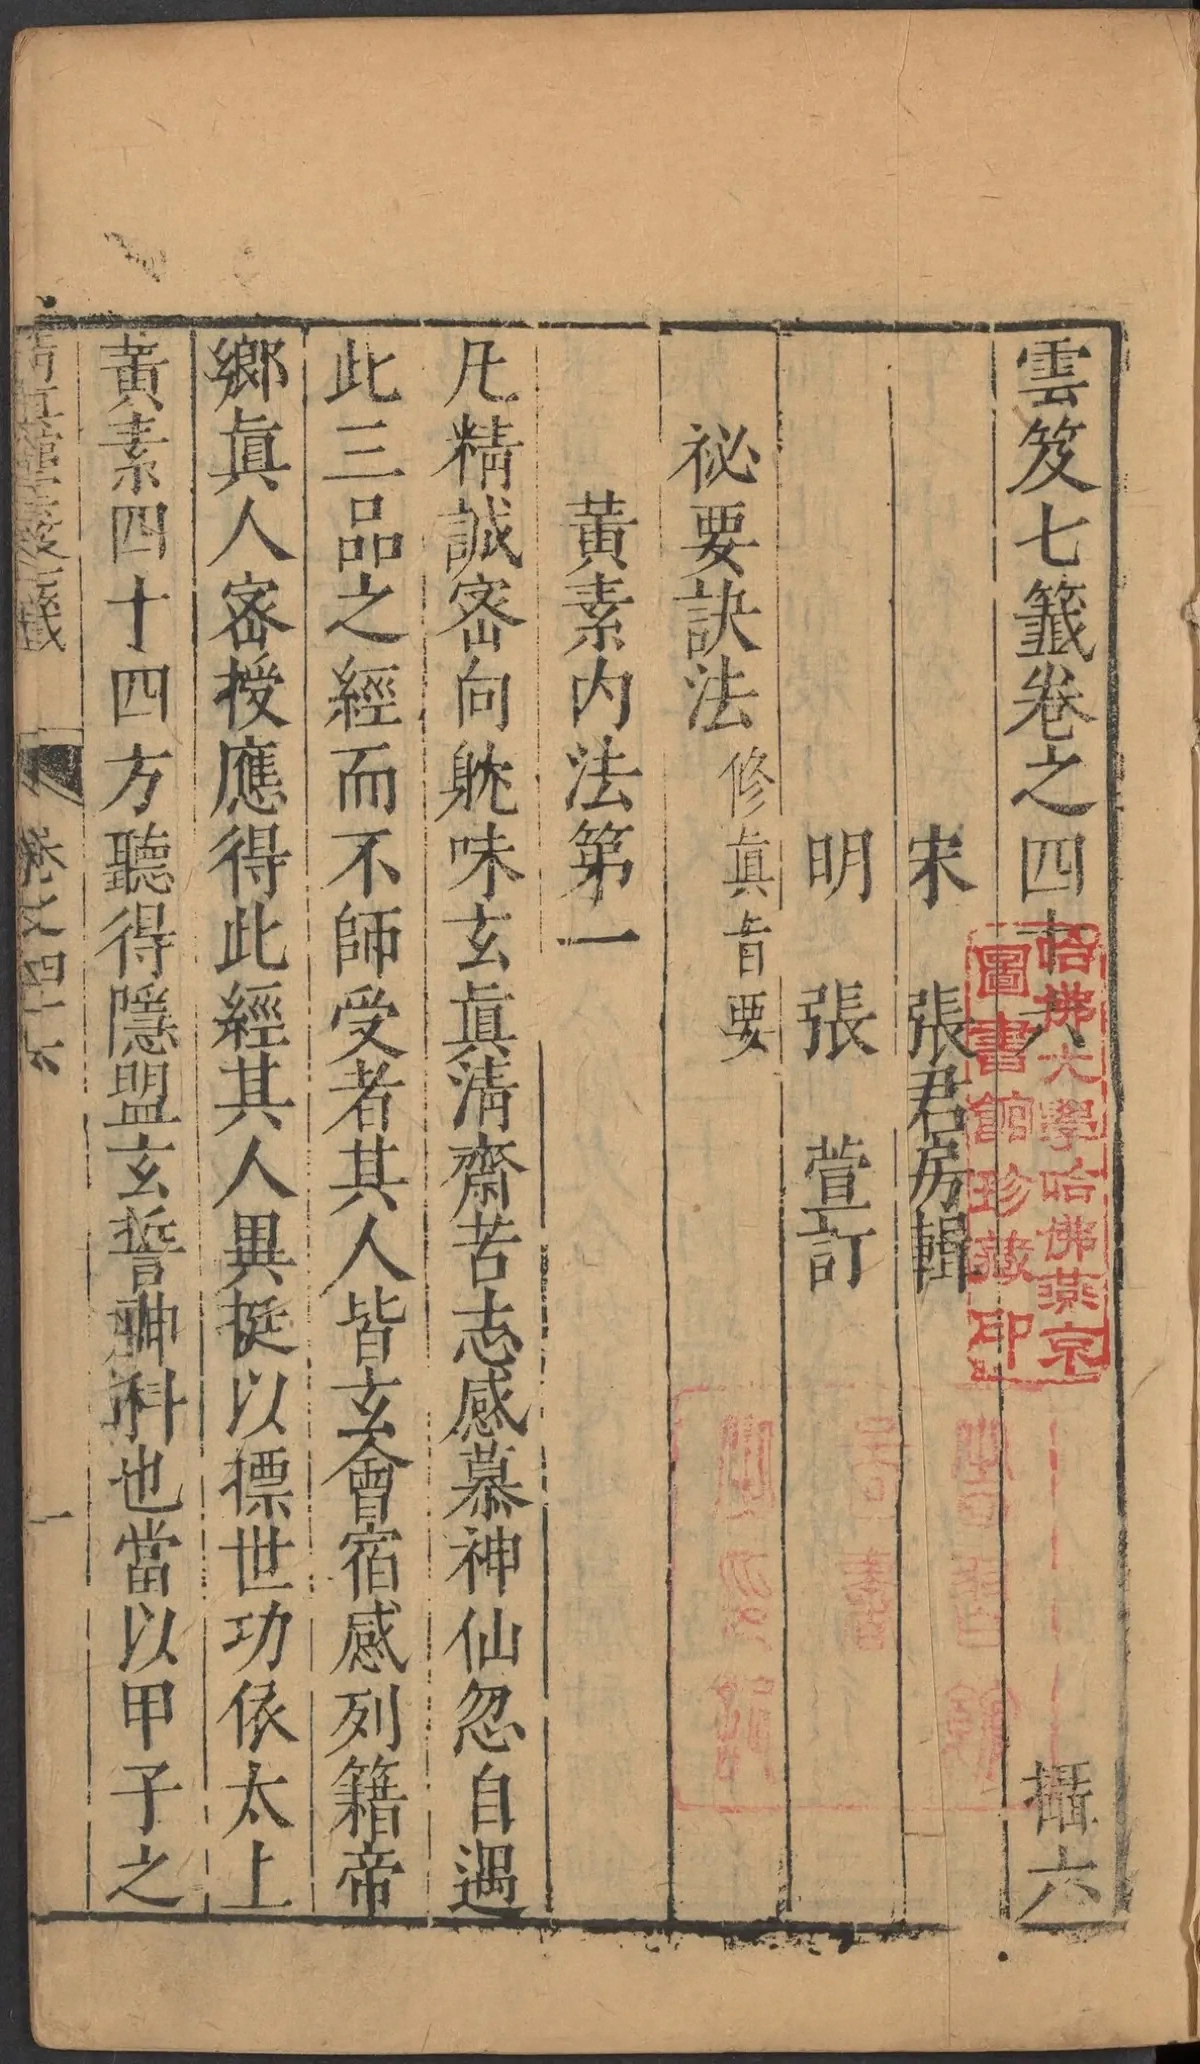 雲笈七籤卷之四十六 攝六
宋 張君房輯
明 張 萱訂
祕要訣法 修眞旨要
黃素内法第一
凡精誠密向躭味玄眞淸齋苦志感慕神仙忽自遇
此三品之經而不師受者其人皆玄會宿感列籍帝
鄉眞人密授應得此經其人異挺以摽世功依太上
黃素四十四方聽得隱盟玄誓神科也當以甲子之
淸眞館雲笈七籤
卷之四十六
一
哈佛大學哈佛燕京
圖書館珍藏印